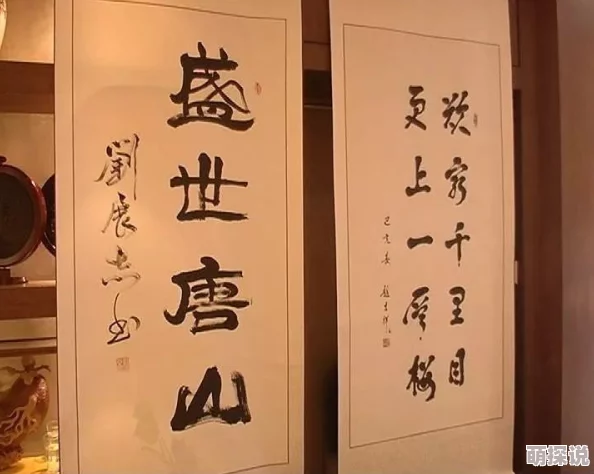 盛世唐山
劉展志书
欲穷千里目
更上一層楼
萌探说